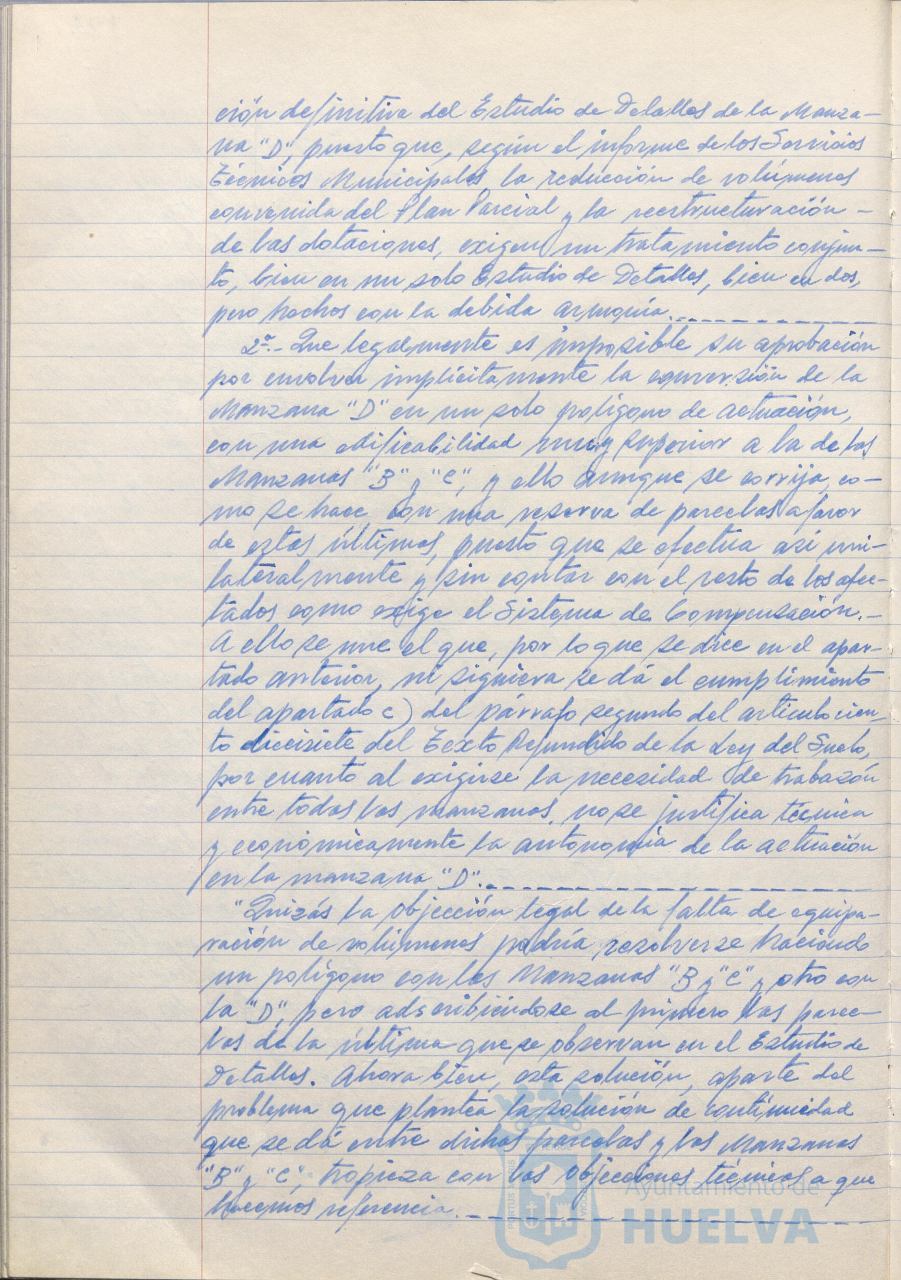 ción definitiva del Estudio de Detalles de la Manza-
na "D", puesto que, según el informe de los Servicios
Técnicos Municipales la reducción de volúmenes
convenida del Plan Parcial y la reestructuración -
de las dotaciones, exigen un tratamiento conjun-
to, bien en un solo Estudio de Detalles, bien en dos,
pero hechos con la debida armonía.
2º.- Que legalmente es imposible su aprobación
por envolver implícitamente la conversión de la
Manzana "D" en un solo polígono de actuación,
con una edificabilidad muy superior a la de las
Manzanas "B" y "C", y ello aunque se corrija, co-
mo se hace con una reserva de parcelas a favor
de estas últimas, puesto que se efectua así uni-
lateralmente y sin contar con el resto de los afec-
tados como exige el Sistema de Compensación.-
A ello se une el que, por lo que se dice en el apar-
tado anterior, ni siquiera se dá el cumplimiento
del apartado c) del párrafo segundo del artículo cien-
to diecisiete del Texto Refundido de la Ley del Suelo,
por cuanto al exigirse la necesidad de trabazón
entre todas las manzanas, no se justifica técnica
y económicamente la autonomía de la actuación
en la manzana "D".
"Quizás la objección legal de la falta de equipa-
ración de volúmenes podría resolverse haciendo
un polígono con las Manzanas "B" y "C" y otro con
la "D", pero adscribiéndose al primero las parce-
las de la última que se observan en el Estudio de
Detalles. Ahora bien, esta solución, aparte del
problema que plantea la solución de continuidad
que se dá entre dichas parcelas y las Manzanas
"B" y "C", tropieza con las objecciones técnicas a que
hacemos referencia.
Ayuntamiento de
HUELVA